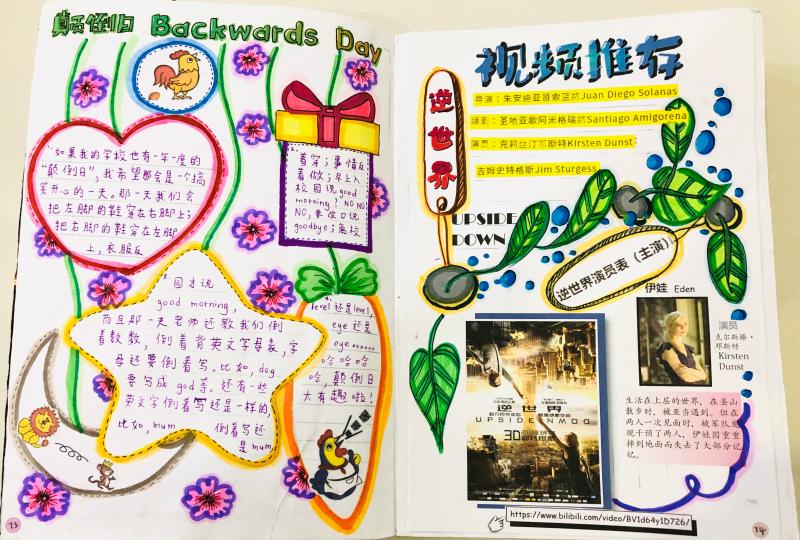 颠倒日 Backwards Day
"如果我的学校也有一年一度的
"颠倒日", 我希望都会是一个搞
笑开心的一天。那一天我们会
把左脚的鞋穿在右脚上;
把右脚的鞋穿在左脚
上, 衣服反
2.
着穿; 事情反
着做; 早上入
校园说good
morning? NO NO
NO, 要改口说
goodbye; 离校
3.园才说
good morning,
而且那一天老师还教我们倒
看数数, 倒着背英文字母表, 字
母还要倒着写。比如, dog
要写成 god等。还有一些
英文字倒着写还是一样的,
比如, mum 倒着写还
是 mum,
4.
level 还是level,
eye 还是
eye。。。。。。
哈哈哈哈
哈, 颠倒日
太有趣啦!
13
视频推荐
导演:朱安迪亚哥索兰纳Juan Diego Solanas
编剧:圣地亚歌阿米格瑞纳Santiago Amigorena
演员:克莉丝汀邓斯特Kirsten Dunst
吉姆史特格斯Jim Sturgess
逆世界
UPSIDE
DOWN
逆世界演员表(主演)
伊娃 Eden
演员
克尔斯滕·
邓斯特
Kirsten
Dunst
生活在上层的世界,在圣山
散步时,被亚当遇到。但在
两人一次见面时,被军队发
现干预了两人,伊娃因重重
摔到地面而失去了大部分记
忆。
逆世界
UPSIDE
DOWN
3D
https://www.bilibili.com/video/BV1d64y1D726/
14